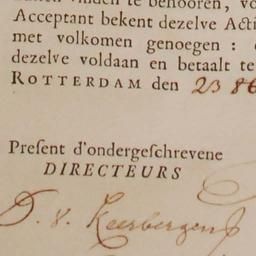 vinden te behooren, vo
Acceptant bekent dezelve Acti
met volkomen genoegen : 
dezelve voldaan en betaalt te
ROTTERDAM den 23
Preſent d'ondergeſchrevene
DIRECTEURS
D. v. Keerbergen